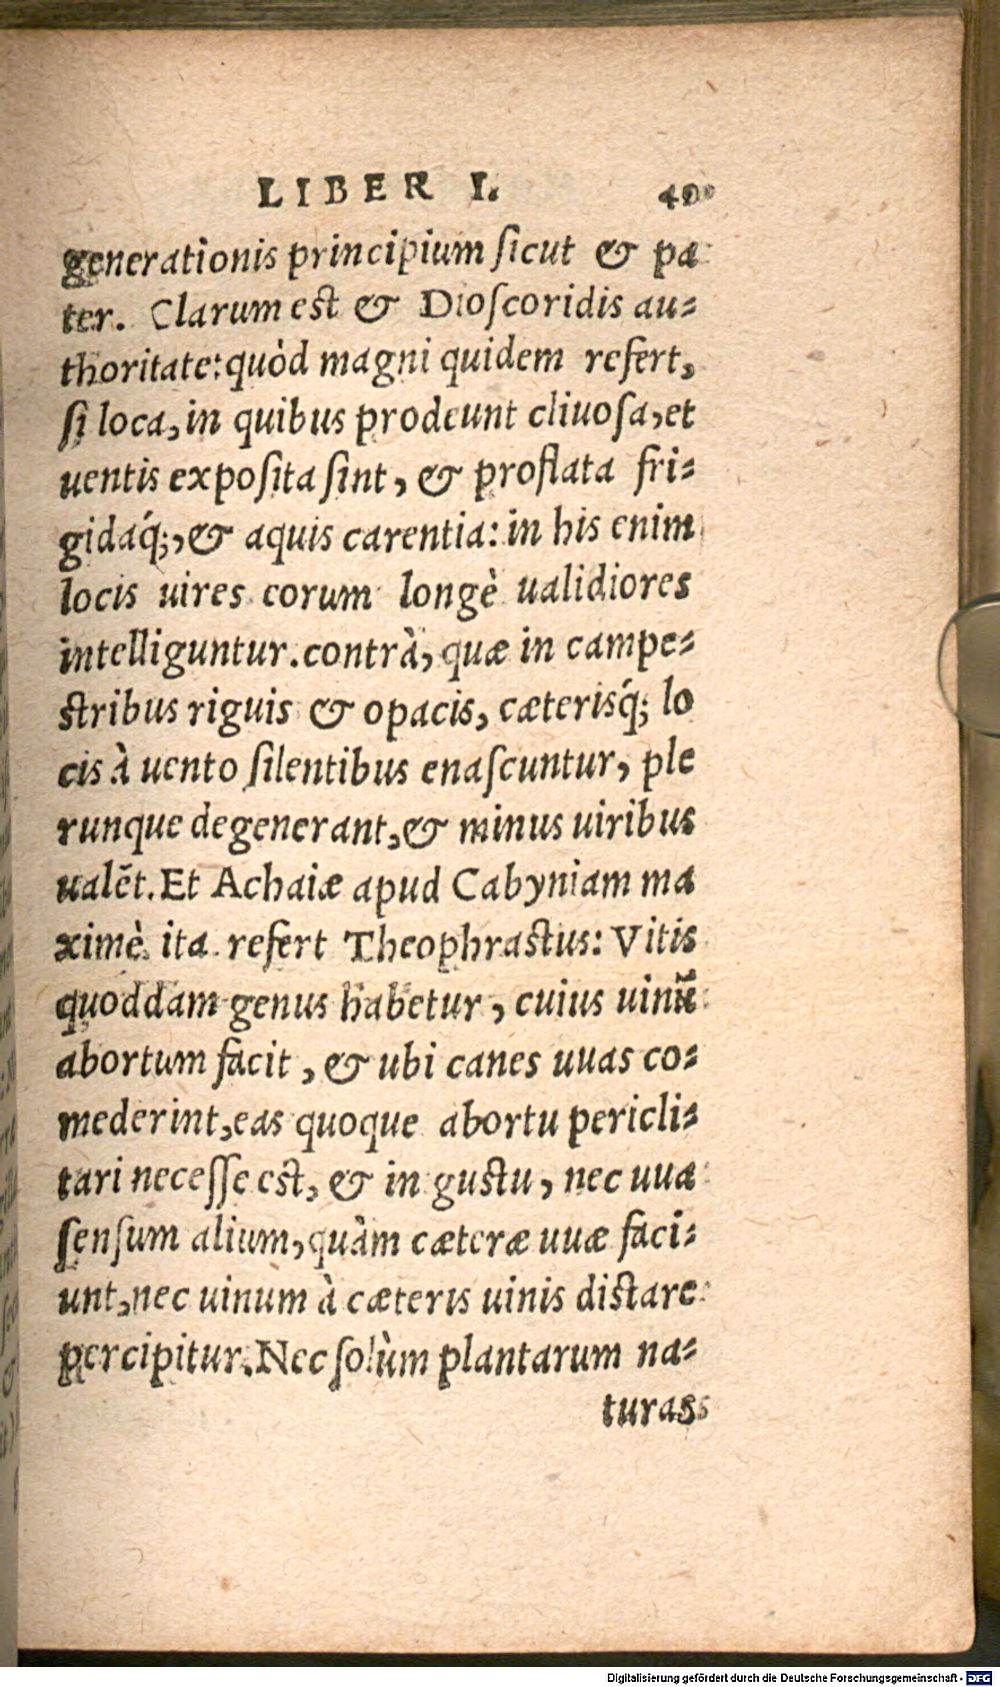 LIBER I.
generationis principium sicut & pa
ter. Clarum est & Dioscoridis au-
thoritate: quòd magni quidem refert,
si loca, in quibus prodeunt cliuosa, et
uentis exposita sint, & proflata fri-
gidaq́;, & aquis carentia: in his enim
locis uires eorum longè ualidiores
intelliguntur. contrà, quæ in campe-
stribus riguis & opacis, cæterisq́; lo
cis à uento silentibus enascuntur, ple
runque degenerant, & minus uiribus
ualēt. Et Achaiæ apud Cabyniam ma
ximè ita refert Theophrastus: Vitis
quoddam genus habetur, cuius uinū
abortum facit, & ubi canes uuas co-
mederint, eas quoque abortu pericli-
tari necesse est, & in gustu, nec uua
sensum alium, quàm cæteræ uuæ faci-
unt, nec uinum à cæteris uinis distare
percipitur. Nec solùm plantarum na-
turas
Digitalisierung gefördert durch die Deutsche Forschungsgemeinschaft - DFG